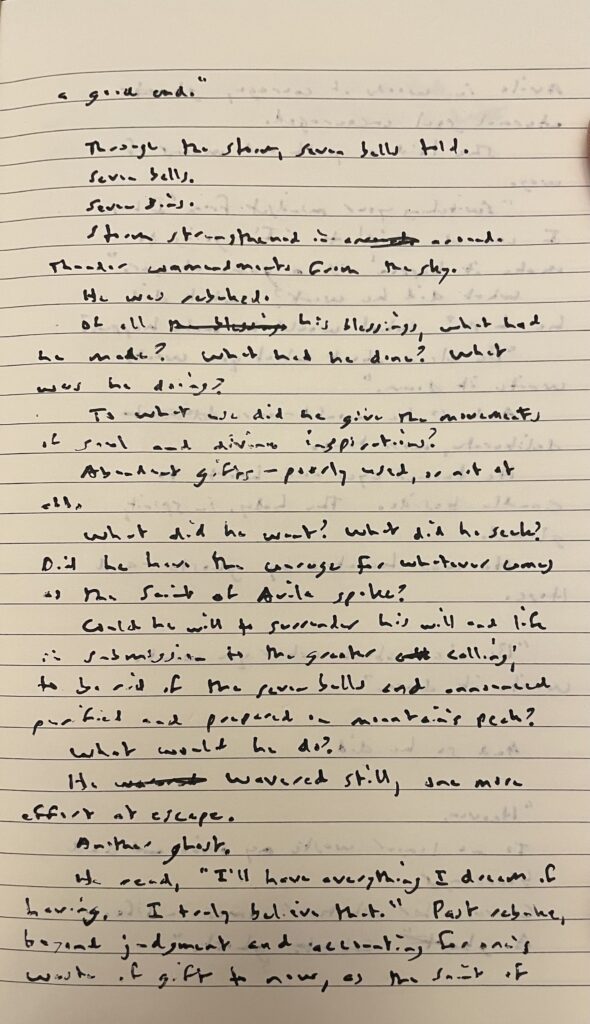 a good end."
Through the storm, seven bells told.
Seven bells.
Seven sins.
Storm strengthened in around.
Thunder commandments from the sky.
He was rebuked.
Of all the blessings his blessings, what had
he made? What had he done? What
was he doing?
To what use did he give the movements
of soul and divine inspirations?
Abundant gifts – poorly used, or not at
all.
What did he want? What did he seek?
Did he have the courage for whatever comes
as the Saint of Avila spoke?
Could he will to surrender his will and life
in submission to the greater calling,
to be rid of the seven bells and announced
purified and prepared on mountain's peak?
What would he do?
He wavered still, one more
effort at escape.
Another ghost.
He read, "I'll have everything I dream of
having. I truly believe that." Past rebuke,
beyond judgment and accounting for one's
waste of gift to now, as the Saint of